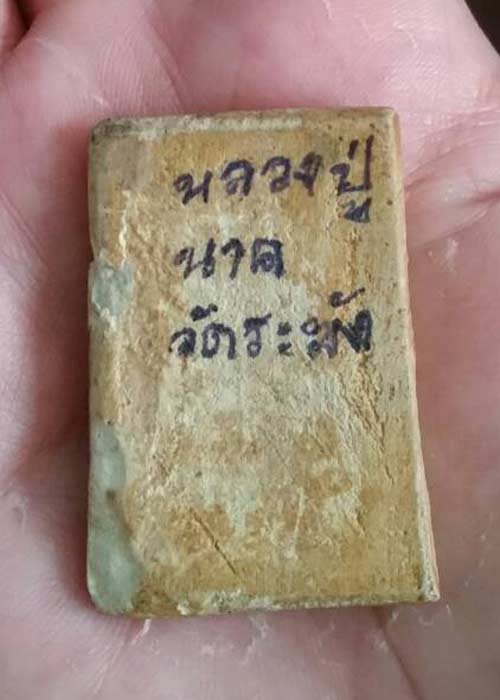 หลวงปู่
นาค
วัดระฆัง